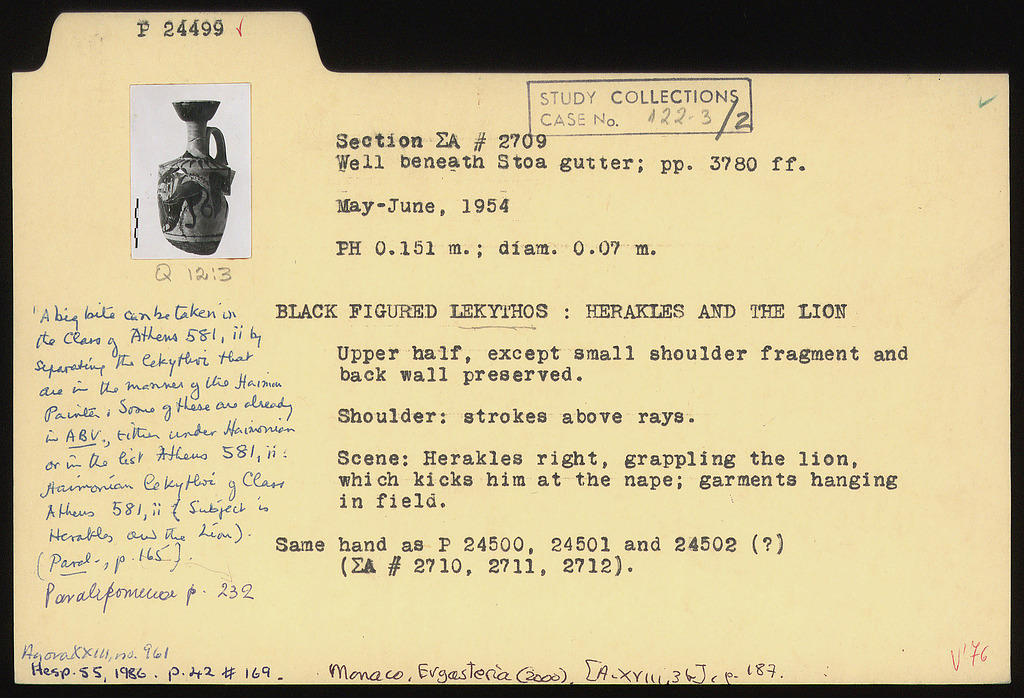 P 24499 ✓
STUDY COLLECTIONS
CASE No. 122-3/2
Section ΣΑ # 2709
Well beneath Stoa gutter; pp. 3780 ff.
May-June, 1954
PH 0.151 m.; diam. 0.07 m.
Q 12:3
BLACK FIGURED LEKYTHOS : HERAKLES AND THE LION
Upper half, except small shoulder fragment and
back wall preserved.
Shoulder: strokes above rays.
Scene: Herakles right, grappling the lion,
which kicks him at the nape; garments hanging
in field.
Same hand as P 24500, 24501 and 24502 (?)
(ΣΑ # 2710, 2711, 2712).
'A big bite can be taken in
the Class of Athens 581, ii by
separating the lekythoi that
are in the manner of the Haimon
Painter: Some of these are already
in ABV., either under Haimonian
or in the list Athens 581, ii:
Haimonian lekythoi of Class
Athens 581, ii (Subject is
Herakles and the Lion).
(Paral., p. 165).
Paralipomena p. 232
Agora XXIII, no. 961
Hesp. 55, 1986. p. 42 # 169.
Monaco, Ergasteria (2000), [A.XVIII, 36], p. 187.
V'76